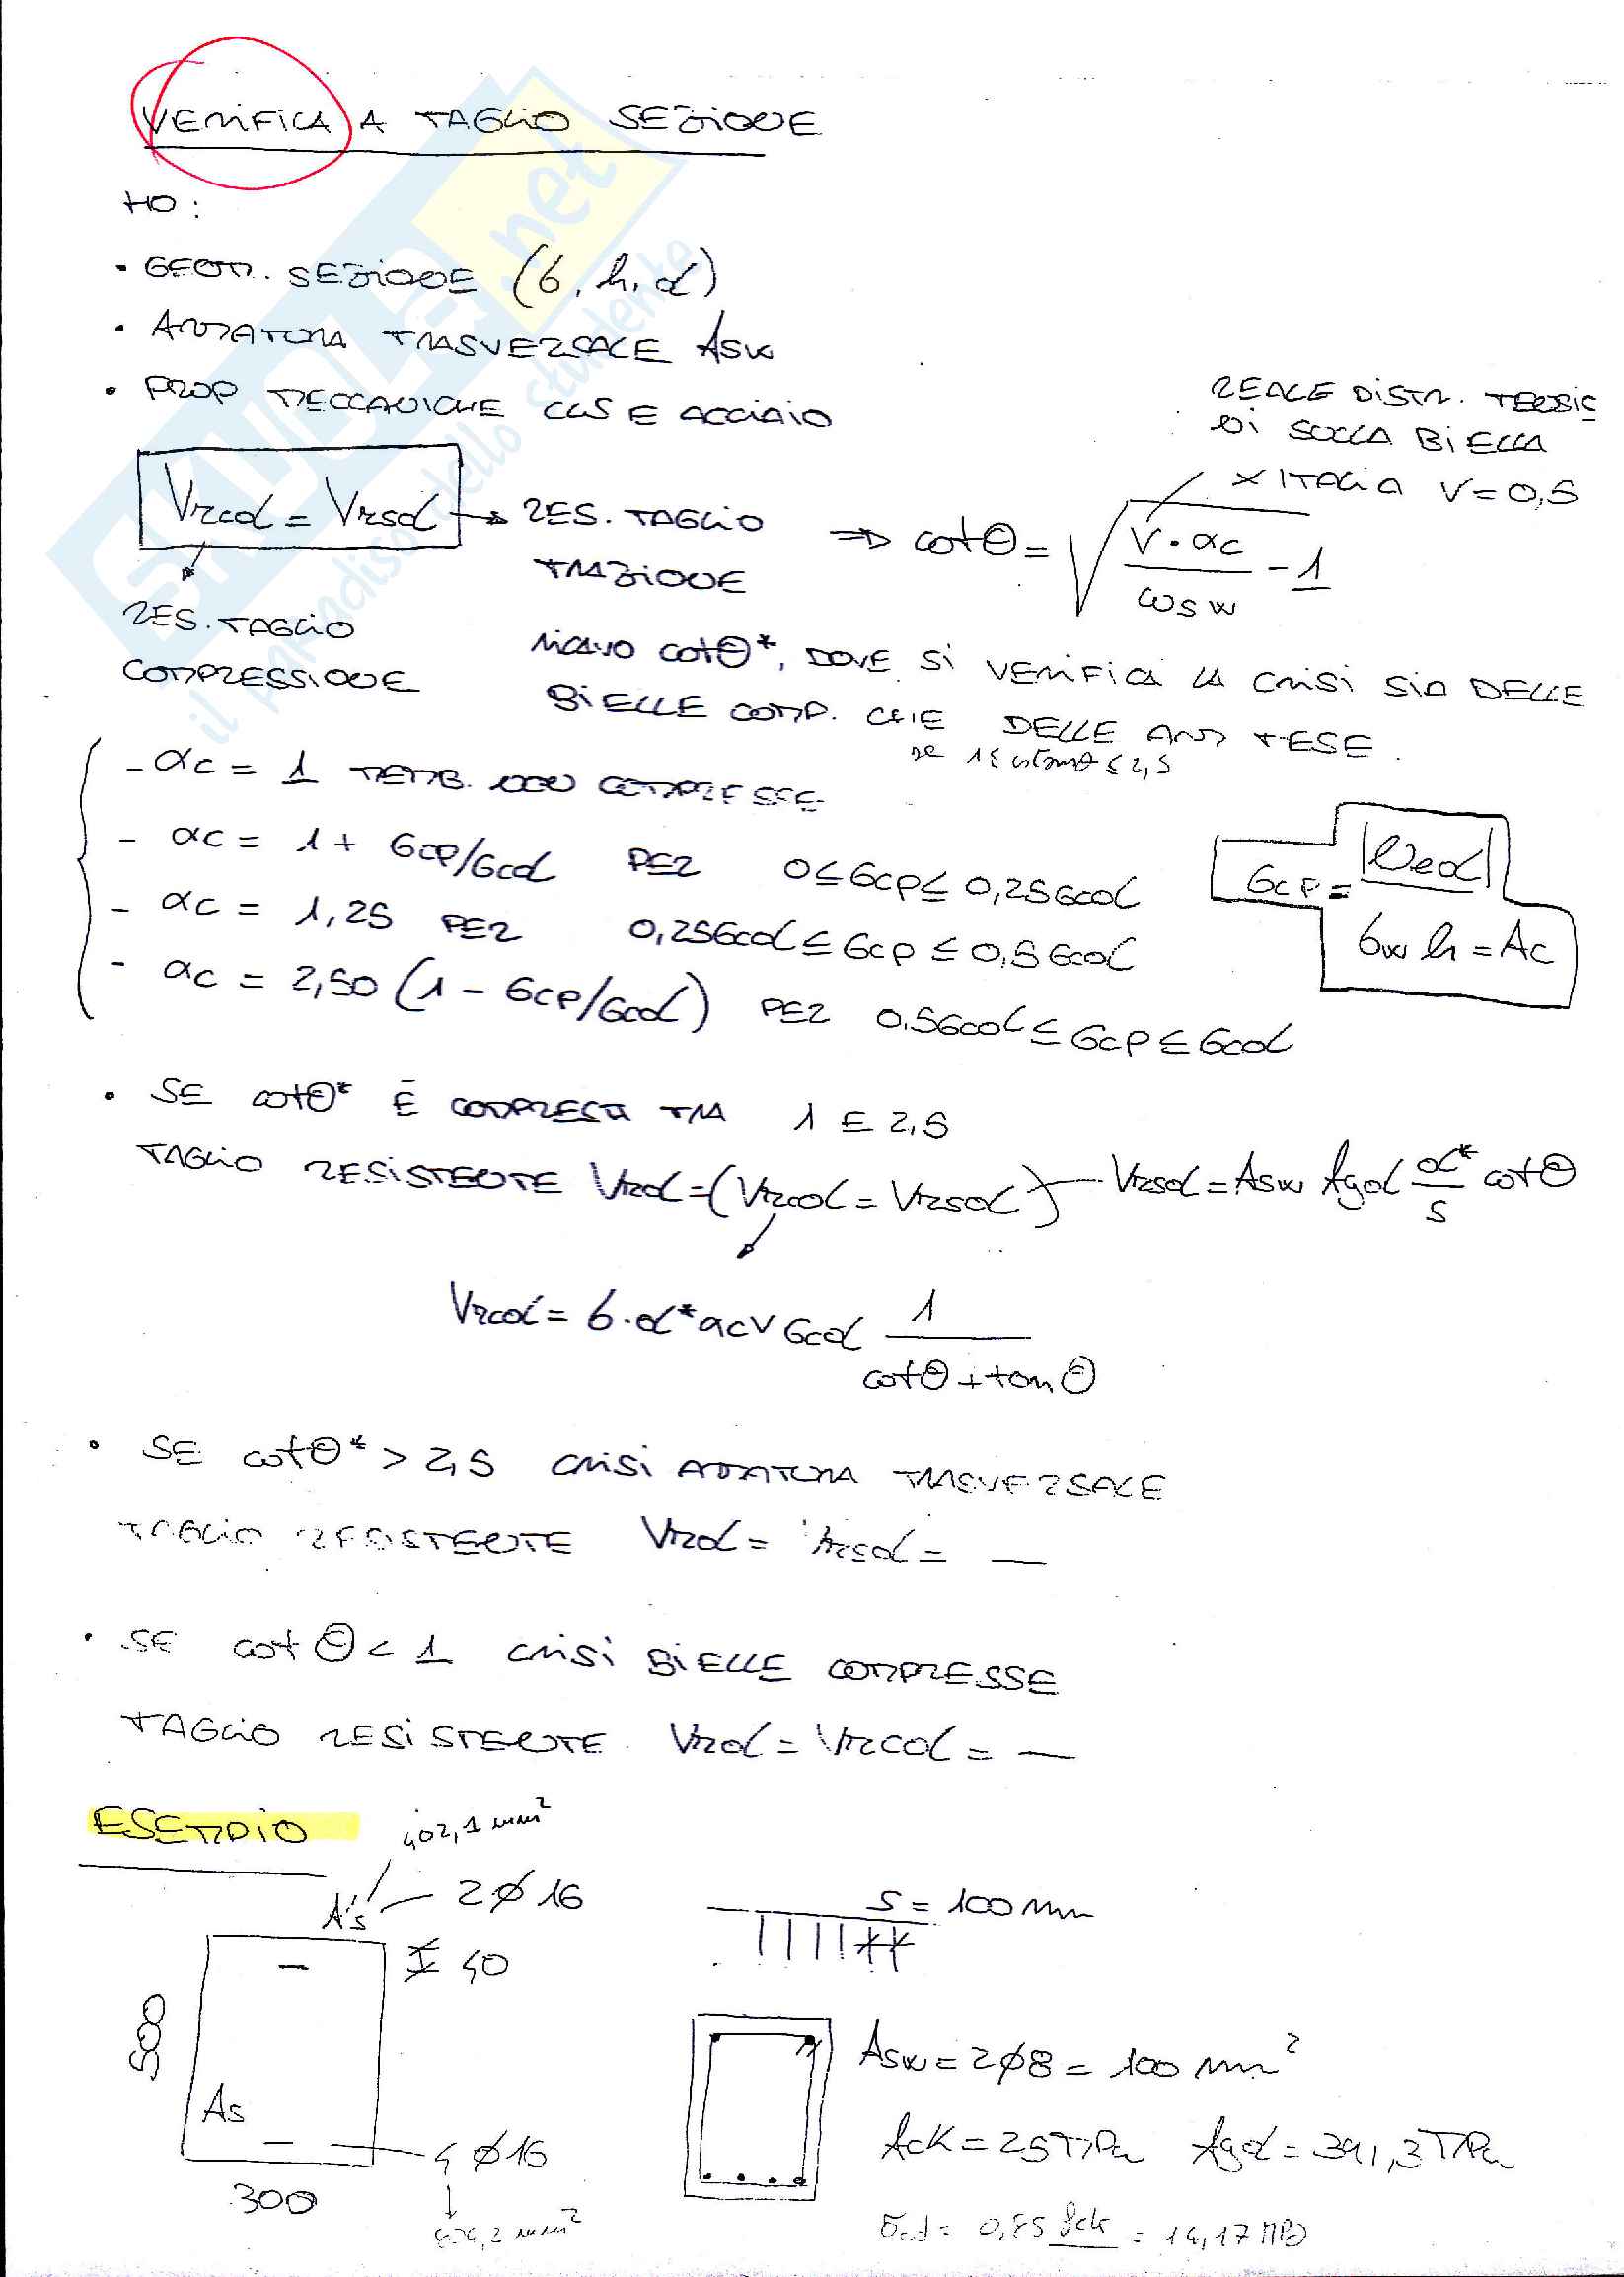 VERIFICA A TAGLIO SEZIONE
HO:
• GEOM. SEZIONE (b, h, d)
• ARMATURA TRASVERSALE Asw
• PROP MECCANICHE CLS E ACCIAIO
REALE DISTR. TENSIO
DI SULLA BIELLA
X ITALIA ν = 0,5
Vrcd = Vrsd → RES. TAGLIO TRAZIONE
⇒ cotθ = √(ν · αc / ωsw - 1)
RES. TAGLIO COMPRESSIONE
RICAVO cotθ*, DOVE SI VERIFICA LA CRISI SIA DELLE
BIELLE COMP. CHE DELLE ARM TESE.
1 ≤ cotθ ≤ 2,5
- αc = 1 MEMB. NON COMPRESSE
- αc = 1 + σcp/σcd PER 0 ≤ σcp ≤ 0,25σcd
- αc = 1,25 PER 0,25σcd ≤ σcp ≤ 0,5σcd
- αc = 2,50 (1 - σcp/σcd) PER 0,5σcd ≤ σcp ≤ σcd
σcp = |Ned| / bw h = Ac
• SE cotθ* È COMPRESA TRA 1 E 2,5
TAGLIO RESISTENTE Vrd = (Vrcd = Vrsd) — Vrsd = Asw fyd d*/s cotθ
Vrcd = b · d* αc ν σcd 1 / cotθ + tanθ
• SE cotθ* > 2,5 CRISI ARMATURA TRASVERSALE
TAGLIO RESISTENTE Vrd = Vrsd = —
• SE cotθ < 1 CRISI BIELLE COMPRESSE
TAGLIO RESISTENTE Vrd = Vrcd = —
ESEMPIO
402,1 mm²
A's — 2Ø16
40
500
As
4Ø16
300
804,2 mm²
s = 100 mm
Asw = 2Ø8 = 100 mm²
fck = 25 MPa fyd = 391,3 MPa
σcd = 0,85 fck = 14,17 MPa
SKUOLA.net
il paradiso dello studente